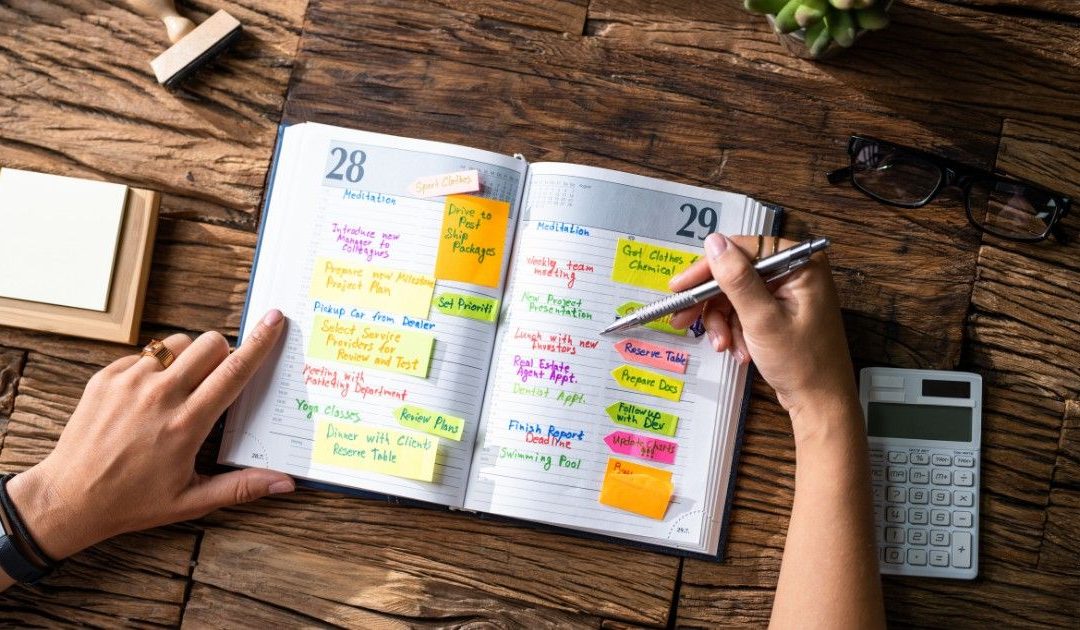 28
Sport Clothes
Meditation
Drive to
Post
Ship
Packages
Introduce new
Manager to
Colleagues
Prepare new Milestone
Project Plan
Set Prioriti
Pickup Car from Dealer
Select Service
Providers for
Review and Test
Meeting with
Marketing Department
Yoga Classes
Review Plans
Dinner with Clients
Reserve Table
29
August
Meditation
Get Clothes
Chemical
Weekly team
meeting
New Project
Presentation
Lunch with new
Investors
Reserve Table
Real Estate
Agent Appt.
Prepare Docs
Dentist Appt.
Followup
with Dev
Finish Report
Deadline
Update Charts
!!!
Swimming Pool